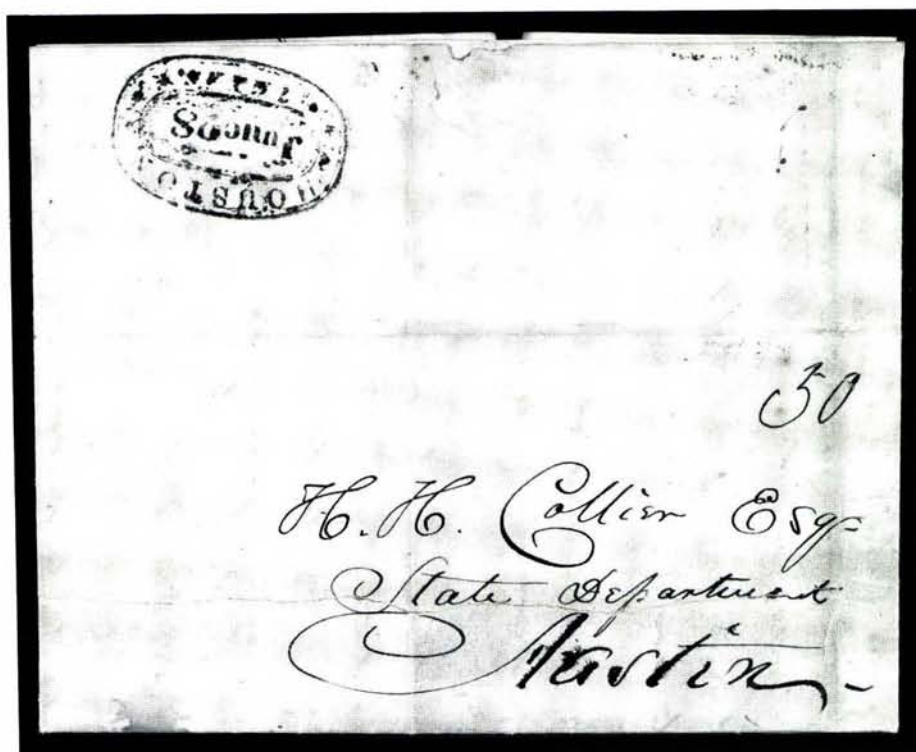 HOUSTON
TEXAS
50
H. H. Collier Esqr
State Department
Austin